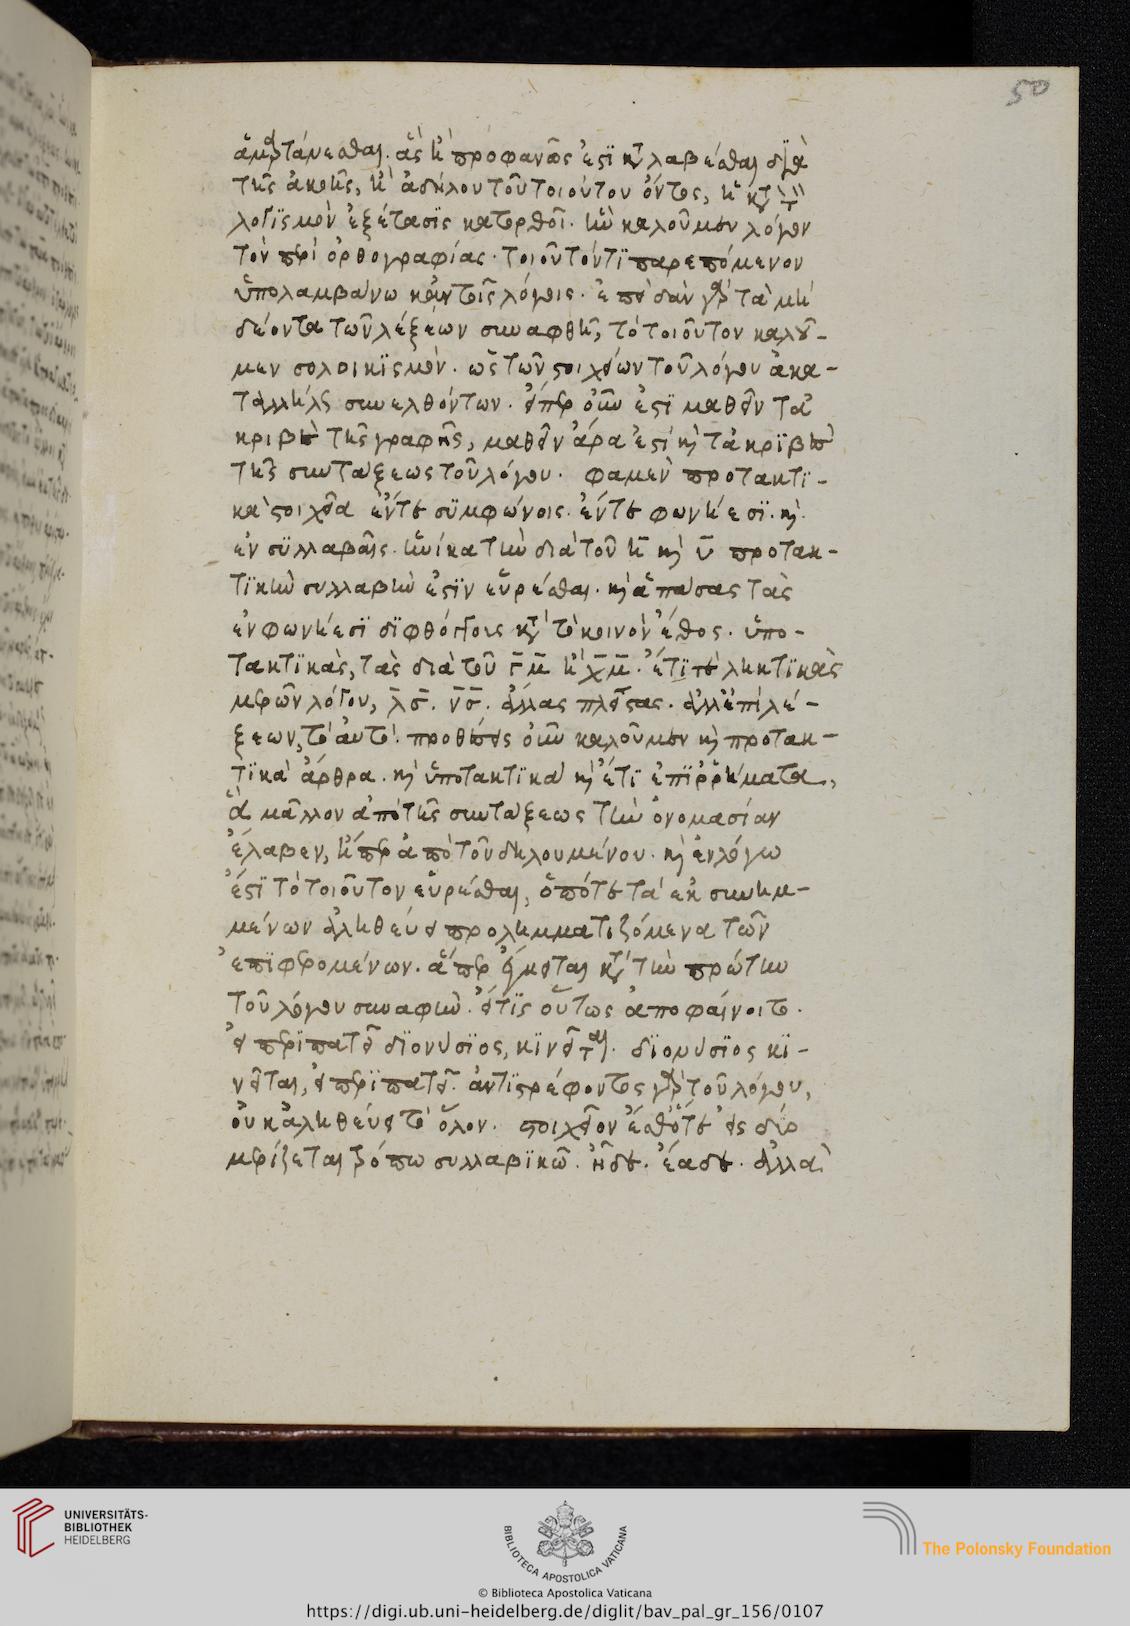 50
ἁμαρτάνεσθαι. ἃς ἢ προφανῶς ἐστϊ καταλαβέσθαι διὰ
τῆς ἀκοῆς, ἢ ἀδήλου τοῦ τοιούτου ὄντος, ἡ κατὰ τὸν
λογϊσμὸν ἐξέτασϊς κατορθοῖ. ἣν καλοῦμεν λόγον
τὸν περὶ ὀρθογραφίας. τοιοῦτόν τϊ παρεπόμενον
ὑπολαμβάνω κἀν τοῖς λόγοις. ἐπειδὰν γὰρ τὰ μὴ
δέοντα τῶν λέξεων συναφθῆ, τὸ τοιοῦτον καλοῦ-
μεν σολοικϊσμόν. ὡς τῶν στοιχείων τοῦ λόγου ἀκα-
ταλλήλως συνελθόντων. εἴπερ οὖν ἐστϊ μαθεῖν τἀ
κριβὲς τῆς γραφῆς, μαθεῖν ἄρα ἐστὶ καὶ τἀκρϊβὲς
τῆς συντάξεως τοῦ λόγου. φαμὲν προτακτϊ-
κὰ στοιχεῖα ἔν τε συμφώνοις. ἔν τε φωνήεσϊ. καὶ
ἐν συλλαβαῖς. ἡνίκα τὴν διὰ τοῦ η καὶ υ προτακ-
τϊκὴν συλλαβὴν ἐστϊν εὑρέσθαι. καὶ ἁπάσας τὰς
ἐν φωνήεσϊ δϊφθόγγοις κατὰ τὸ κοινὸν ἔθος. ὑπο-
τακτϊκὰς, τὰς διὰ τοῦ γμ ἢ χμ. ἔτϊ τε ληκτϊκὰς
μερῶν λόγου, λς. νς. ἄλλας πλείστας. ἀλλ' ἐπὶ λέ-
ξεων, τὸ αὐτό. προθέσεις οὖν καλοῦμεν καὶ προτακ-
τϊκὰ ἄρθρα. καὶ ὑποτακτϊκὰ καὶ ἔτϊ ἐπϊρρήματα,
ἃ μᾶλλον ἀπὸ τῆς συντάξεως τὴν ὀνομασίαν
ἔλαβεν, ἤπερ ἀπὸ τοῦ δηλουμένου. καὶ ἐν λόγω
ἔστϊ τὸ τοιοῦτον εὑρέσθαι, ὁπότε τὰ ἐκ συνημ-
μένων ἀληθεύει προλημματιζόμενα τῶν
ἐπϊφερομένων. ἅπερ ἔγκειται κατὰ τὴν πρώτην
τοῦ λόγου συναφήν. εἴ τϊς οὕτως ἀποφαίνοιτο.
εἰ περϊπατεῖ δϊονύσϊος, κϊνεῖται. δϊονύσϊος κϊ-
νεῖται, εἰ περϊπατεῖ. ἀντϊστρέφοντος γὰρ τοῦ λόγου,
οὐκ ἀληθεύει τὸ ὅλον. στοιχεῖον ἔσθότε εἰς δύο
μερίζεται τρόπω συλλαβϊκῶ. ἥδου. ἑάδου. ἀλλὰ
UNIVERSITÄTS-
BIBLIOTHEK
HEIDELBERG
BIBLIOTECA APOSTOLICA VATICANA
The Polonsky Foundation
© Biblioteca Apostolica Vaticana
https://digi.ub.uni-heidelberg.de/diglit/bav_pal_gr_156/0107